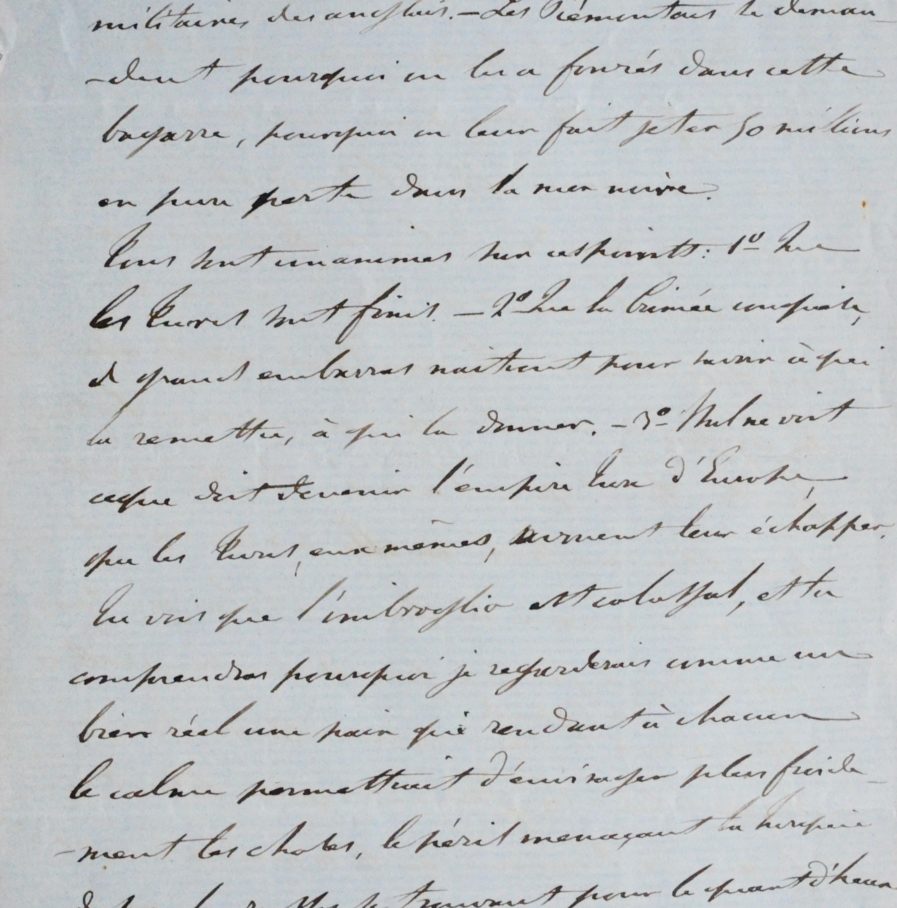 militaires des anglais. – Les Piémontais se deman
-dent pourquoi on les a fourrés dans cette
bagarre, pourquoi on leur fait jeter 50 millions
en pure perte dans la mer noire.
Tous sont unanimes sur ces points : 1º Que
les Turcs sont finis. – 2º Que la Crimée conquise,
d grands embarras naîtront pour savoir à qui
la remettre, à qui la donner. – 3º Nul ne voit
ce que doit devenir l'empire turc d'Europe,
que les Turcs, eux mêmes, avouent leur échapper.
Tu vois que l'imbroglio est colossal, et tu
comprendras pourquoi je regarderais comme un
bien réel une paix qui rendant à chacun
le calme permettrait d'envisager plus froide-
-ment les choses, le péril menaçant la
se trouvant pour le quart d'heure